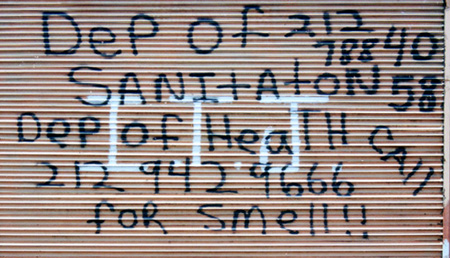 Dep of 212
788 40
SANItAtoN 58
Dep of HeaTH CAll
212 942 9666
foR Smell!!